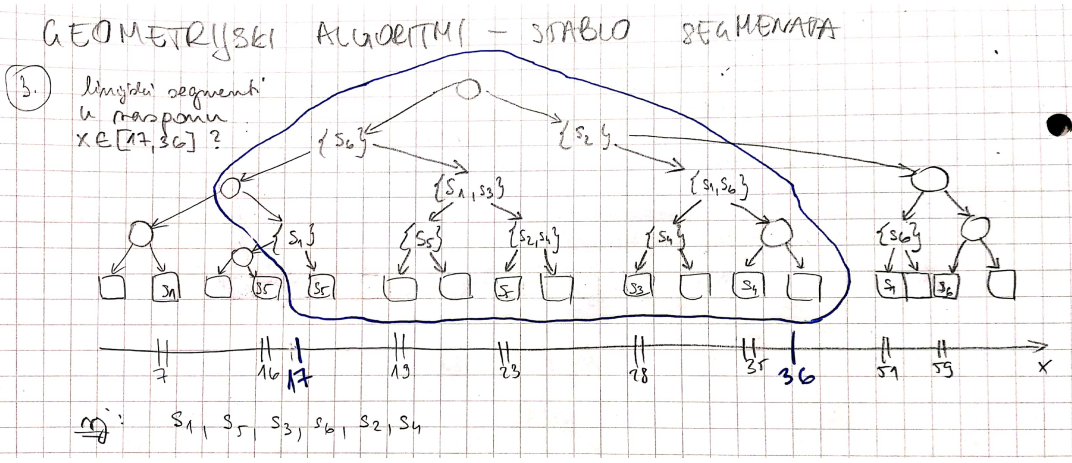 GEOMETRIJSKI ALGORITMI - STABLO SEGMENATA
3. linijski segmenti
u rasponu
x ∈ [17,36] ?
{S6} {S2}
{S1, S3} {S1, S6}
{S1} {S5} {S2, S4} {S4} {S6}
S1 S5 S5 S3 S4 S1 S6
7 16 17 19 23 28 35 36 51 59 x
rj: S1, S5, S3, S6, S2, S4